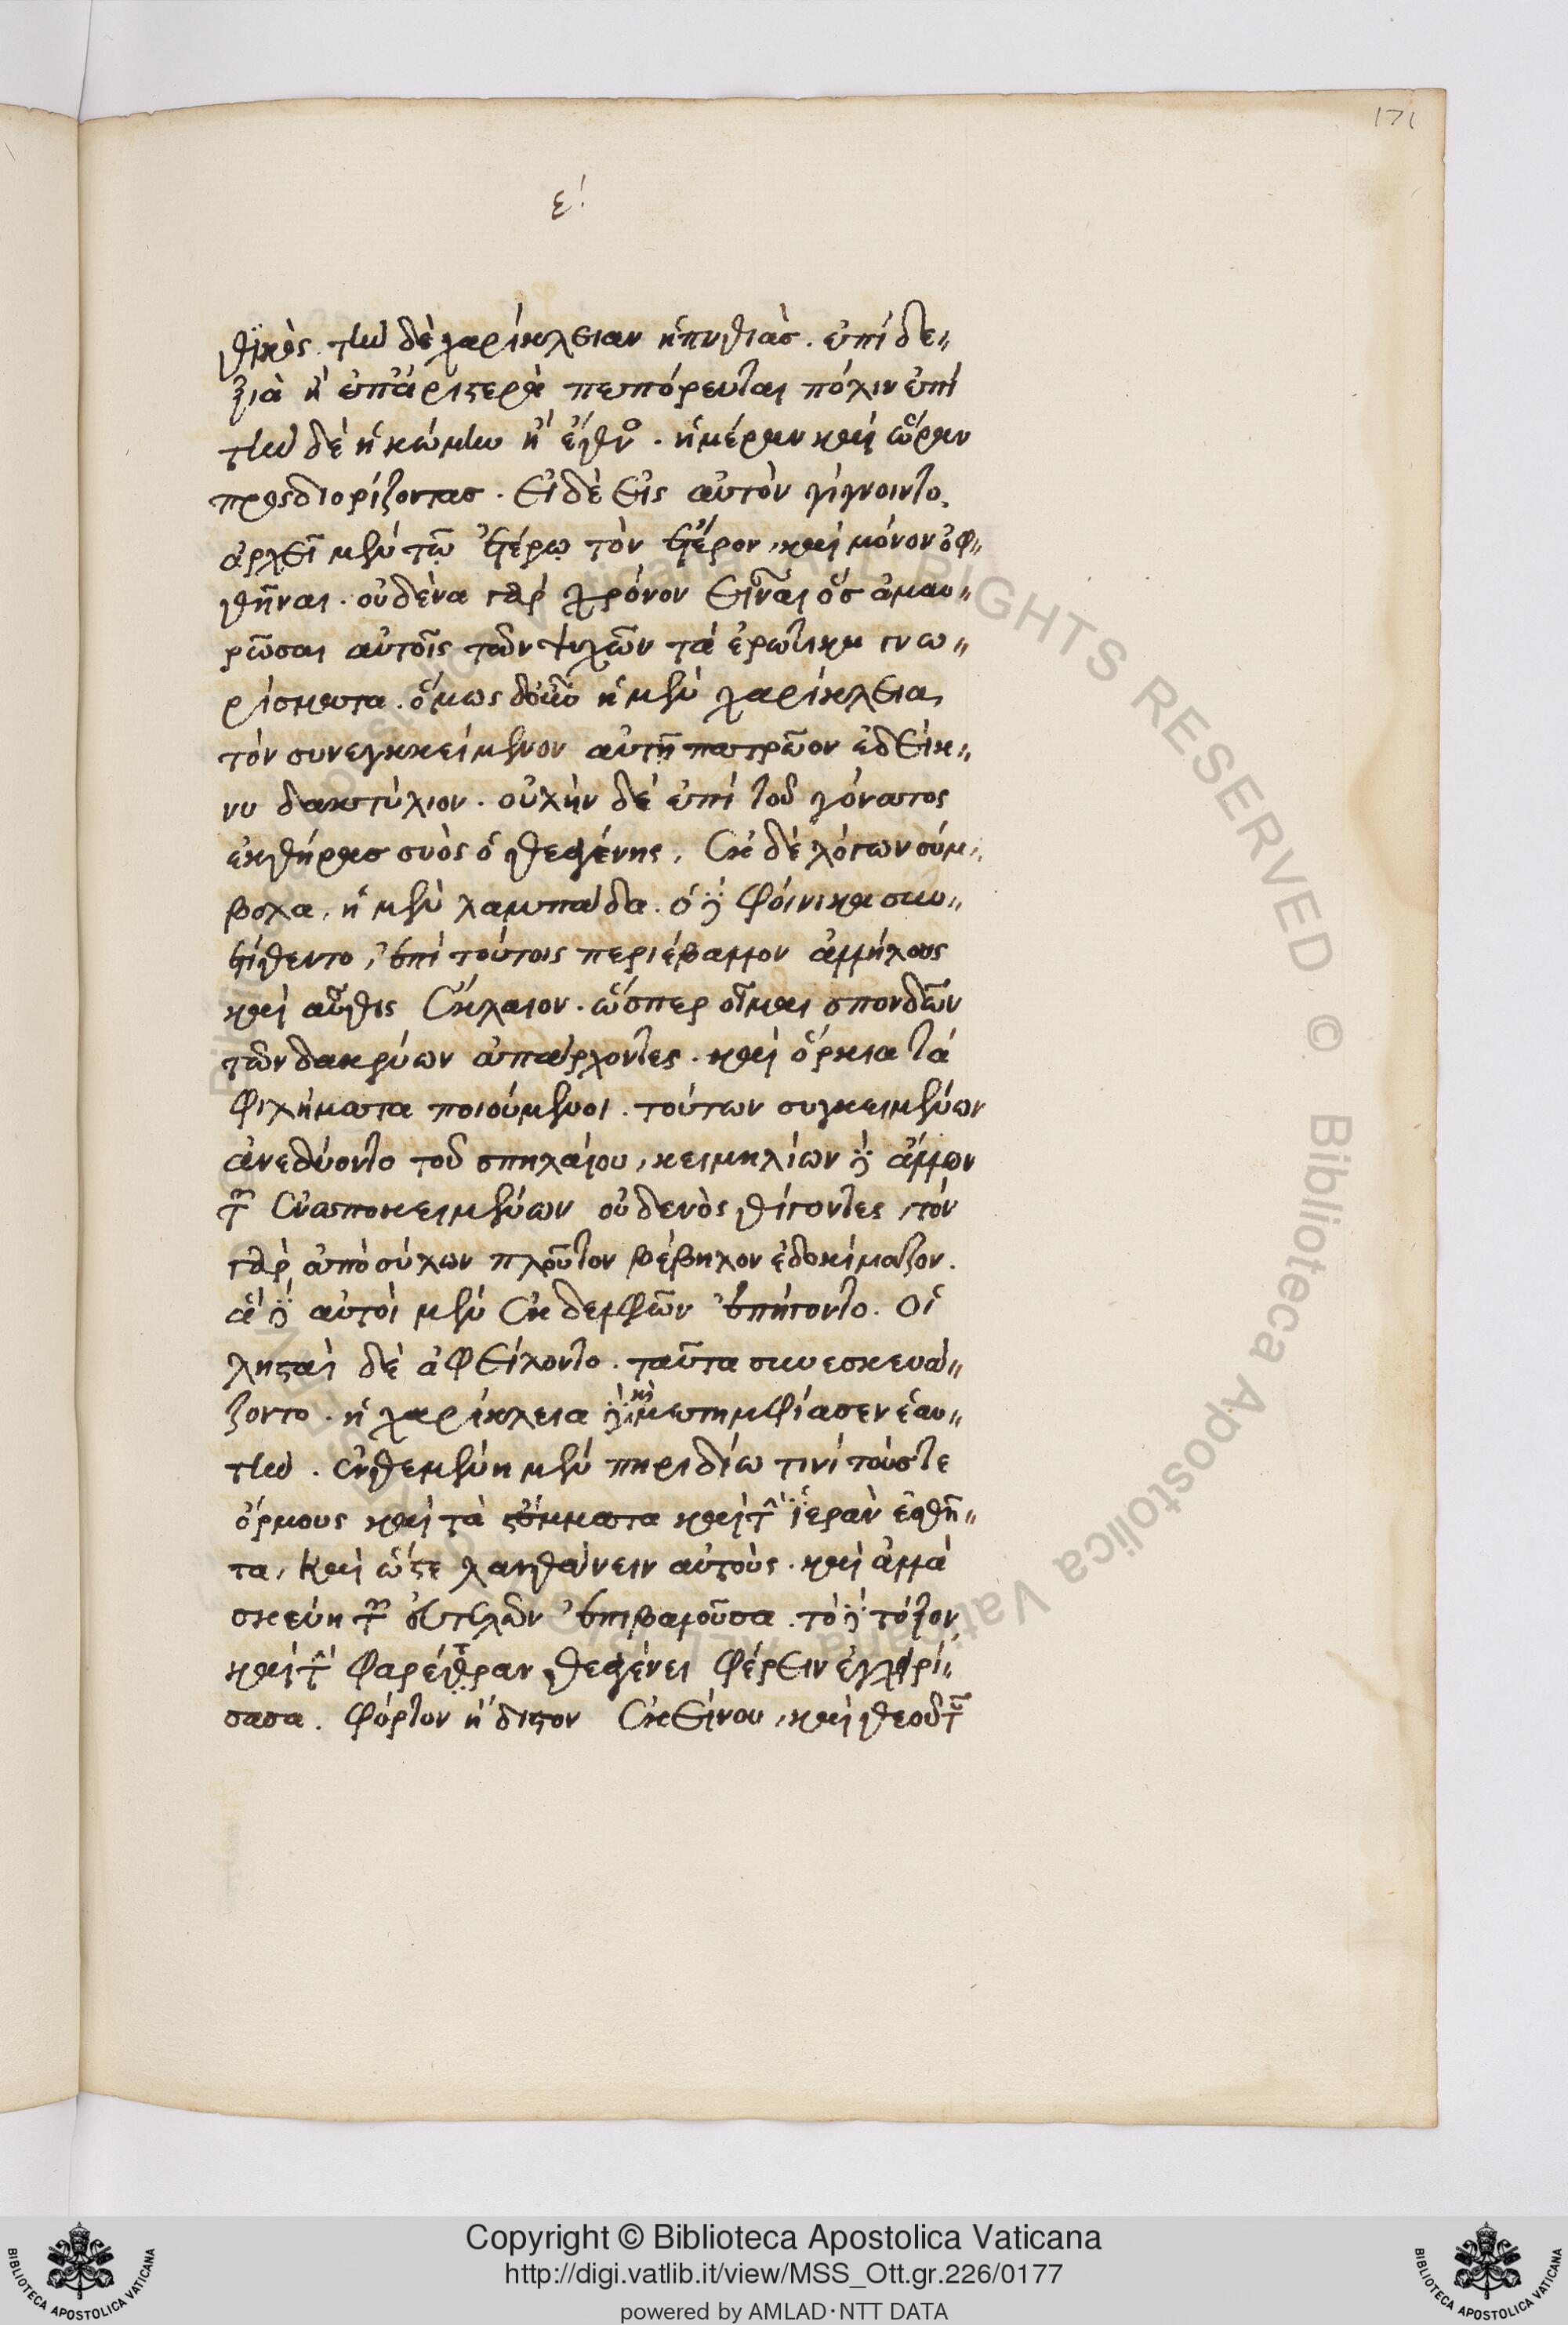 171
ε΄
θικὸς. τὴν δὲ χαρίκλειαν ἡ πυθιὰς. ἐπὶ δε〃
ξιὰ ἢ ἐπ' ἀριστερὰ πεπόρευται πόλιν ἐπὶ
τὴν δὲ ἢ κώμην ἢ ἔθνος. ἡμέραν καὶ ὥραν
προσδιορίζοντας. εἰ δὲ εἰς αὐτὸν γίγνοιντο,
ἀρχεῖ μὲν τῷ ἑτέρῳ τὸν ἕτερον, καὶ μόνον ὀφ〃
θῆναι. οὐδένα γὰρ χρόνον εἶναι ὃς ἀμαυ〃
ρῶσαι αὐτοῖς τῶν ψυχῶν τὰ ἐρωτικὰ γνω〃
ρίσματα. ὅμως δ' οὖν ἡ μὲν χαρίκλεια,
τὸν συνεγκκείμενον αὐτῇ πατρῶον ἐδείκ〃
νυ δακτύλιον. οὐλὴν δὲ ἐπὶ τοῦ γόνατος
ἐκ θήρας συὸς ὁ θεαγένης, ἐκ δὲ λόγων σύμ〃
βολα, ἡ μὲν λαμπάδα. ὁ δὲ φοίνικα συν〃
ετίθεντο, ἐπὶ τούτοις περιέβαλλον ἀλλήλους
καὶ αὖθις ἔκλαιον. ὥσπερ οἶμαι σπονδῶν
τῶν δακρύων ἀπάρχοντες. καὶ ὅρκια τὰ
φιλήματα ποιούμενοι. τούτων συγκειμένων
ἀνεδύοντο τοῦ σπηλαίου, κειμηλίων δὲ ἄλλων
τῶν ἐναποκειμένων οὐδενὸς θίγοντες, τὸν
γὰρ ἀπὸ σύλων πλοῦτον βέβηλον ἐδοκίμαζον.
ἃ δὲ αὐτοὶ μὲν ἐκ δελφῶν ἐπήγοντο. οἱ
λησταὶ δὲ ἀφείλοντο. ταῦτα συνεσκευά〃
ζοντο. ἡ χαρίκλεια δὲ καὶ μετημφίασεν ἑαυ〃
τὴν. ἐνθεμένη μὲν πηριδίω τινὶ τούς τε
ὅρμους καὶ τὰ στέμματα καὶ τὴν ἱερὰν ἐσθῆ〃
τα, καὶ ὥστε λανθάνειν αὐτοὺς. καὶ ἀλλὰ
σκεύη τῶν εὐτελῶν ἐπιβαλοῦσα. τὸ δὲ τόξον,
καὶ τὴν φαρέτραν θεαγένει φέρειν ἐγχειρί〃
σασα. φόρτον ἥδιστον ἐκείνου, καὶ θεοῦ τοῦ
Copyright © Biblioteca Apostolica Vaticana
http://digi.vatlib.it/view/MSS_Ott.gr.226/0177
powered by AMLAD·NTT DATA